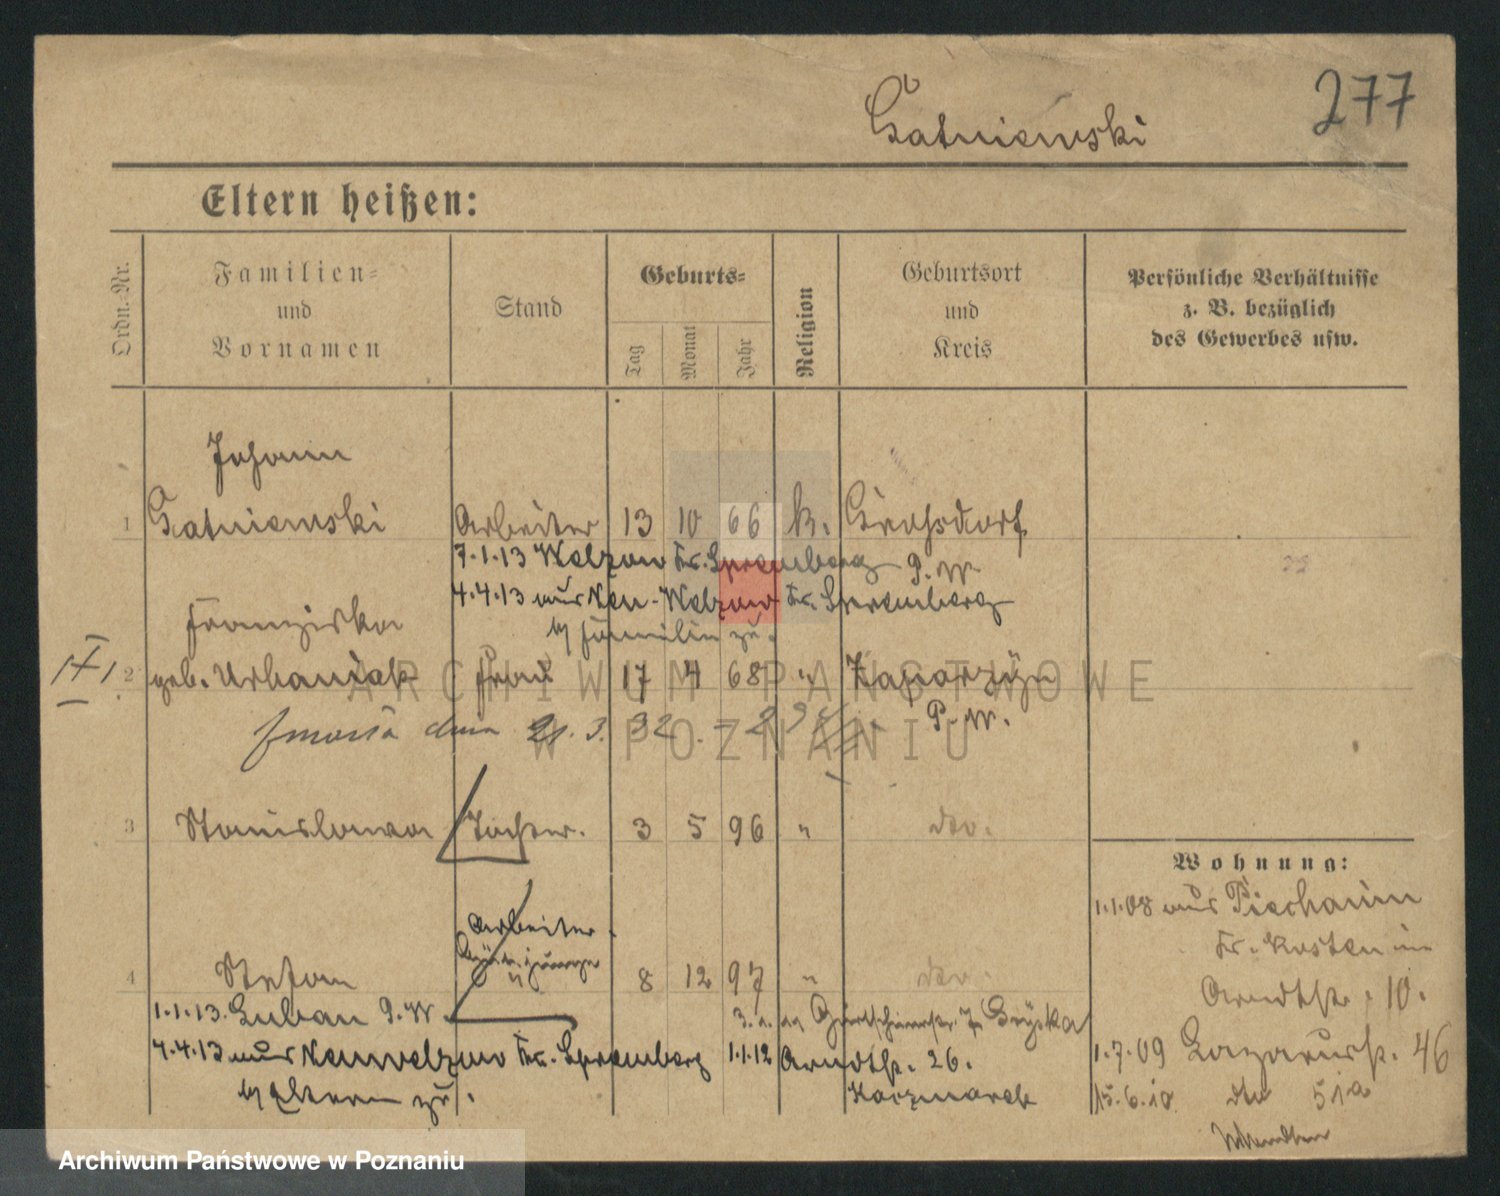 277
Gatniewski
Eltern heißen:
Ordn.-Nr.
Familien-
und
Vornamen
Stand
Geburts-
Tag
Monat
Jahr
Religion
Geburtsort
und
Kreis
Persönliche Verhältnisse
z. B. bezüglich
des Gewerbes usw.
Johann
1 Gatniewski Arbeiter 13 10 66 k. Grossdorf
7.1.13 Welzow Kr. Spremberg P. W.
4.4.13 aus Neu-Welzow Kr. Spremberg
Familie zu.
Franziska
2 geb. Urbaniak Frau 17 4 68 " P. W.
zmarła dnia 21. 3. 32
3 Stanislawa Tochter. 3 5 96 " do.
Wohnung:
1.1.08 aus Piechanin
Kr. Kosten in
Arndtstr. 10.
Arbeiter
4 Stefan 8 12 97 " do.
1.1.13. Luban P. W.
4.4.13 aus Neuwelzow Kr. Spremberg
z. Eltern zu.
1.1.12 Arndtstr. 26.
Kaczmarek
1.7.09 Lazarusstr. 46
15.6.10 dto 51a
ARCHIWUM PAŃSTWOWE
W POZNANIU
Archiwum Państwowe w Poznaniu